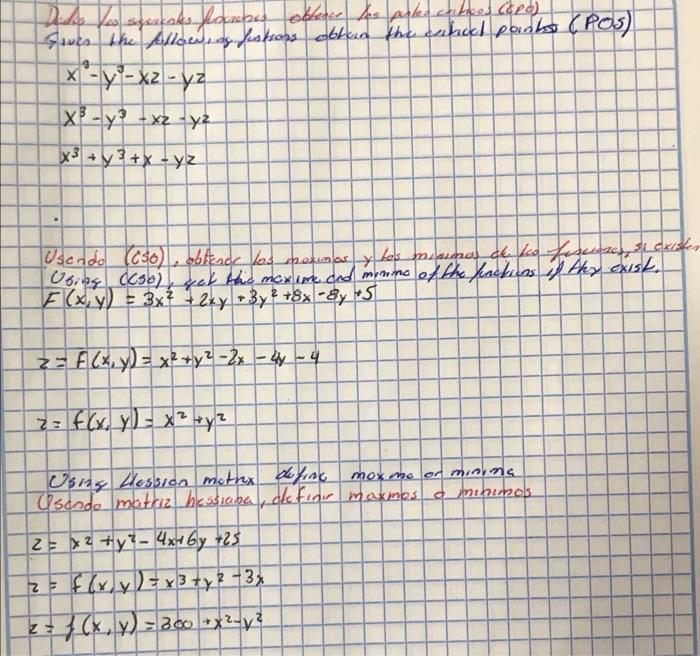 Dados los siguientes funciones obtener los puntos criticos (CPO)
Given the following funtions obtain the critical points (POS)
x³-y³-xz-yz
x³-y³-xz-yz
x³+y³+x-yz
Usando (CSO), obtener los maximos y los minimos de las funciones, si existen
Using (CSO), get the maxime and minima of the functions if they exist.
F(x,y) = 3x²+2xy+3y²+8x-8y+5
z=f(x,y)=x²+y²-2x-4y-4
z=f(x,y)=x²+y²
Using Hession matrix define maxima or minima
Usando matriz hessiana, definir maxmos o minimos
z= x²+y²-4x+6y+25
z= f(x,y)=x3+y²-3x
z=f(x,y)=300+x²-y²